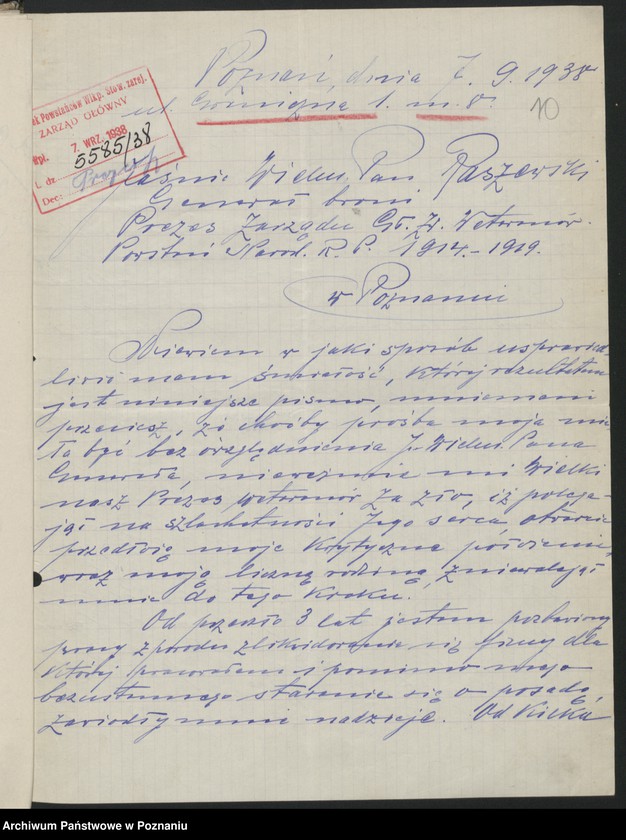 Poznań, dnia 7. 9. 1938
ul. 1. m. 8.
10
Powstańców Wlkp. Stow. zarej.
ZARZĄD GŁÓWNY
Wpł. 7. WRZ. 1938
L. dz. 5585/38
Dec:
Jaśnie Wielm. Pan Raszewski
Generał broni
Prezes Zarządu Gł. Zw. Weteranów
Powstań Narod. R. P. 1914.-1919.
w Poznaniu
Niewiem w jaki sposób usprawied-
liwić mam śmiałość, której rezultatem
jest niniejsze pismo, mniemam
przeciesz, że choćby prośba moja mia-
ła być bez uwzględnienia J. Wielm. Pana
Generała, nieweźmie mi Wielki
nasz Prezes Weteranów za złe, iż polega-
jąc na szlachetności Jego serca, otwarcie
przedłożę moje krytyczne położenie,
wraz moją liczną rodziną, zniewalając
mnie do tego kroku.
Od przeszło 3 lat jestem pozbawiony
pracy z powodu zlikwidowania się firmy dla
której pracowałem i pomimo mego
bezustannego starania się o posadę,
zawiodły mnie nadzieje. Od kilku
Archiwum Państwowe w Poznaniu